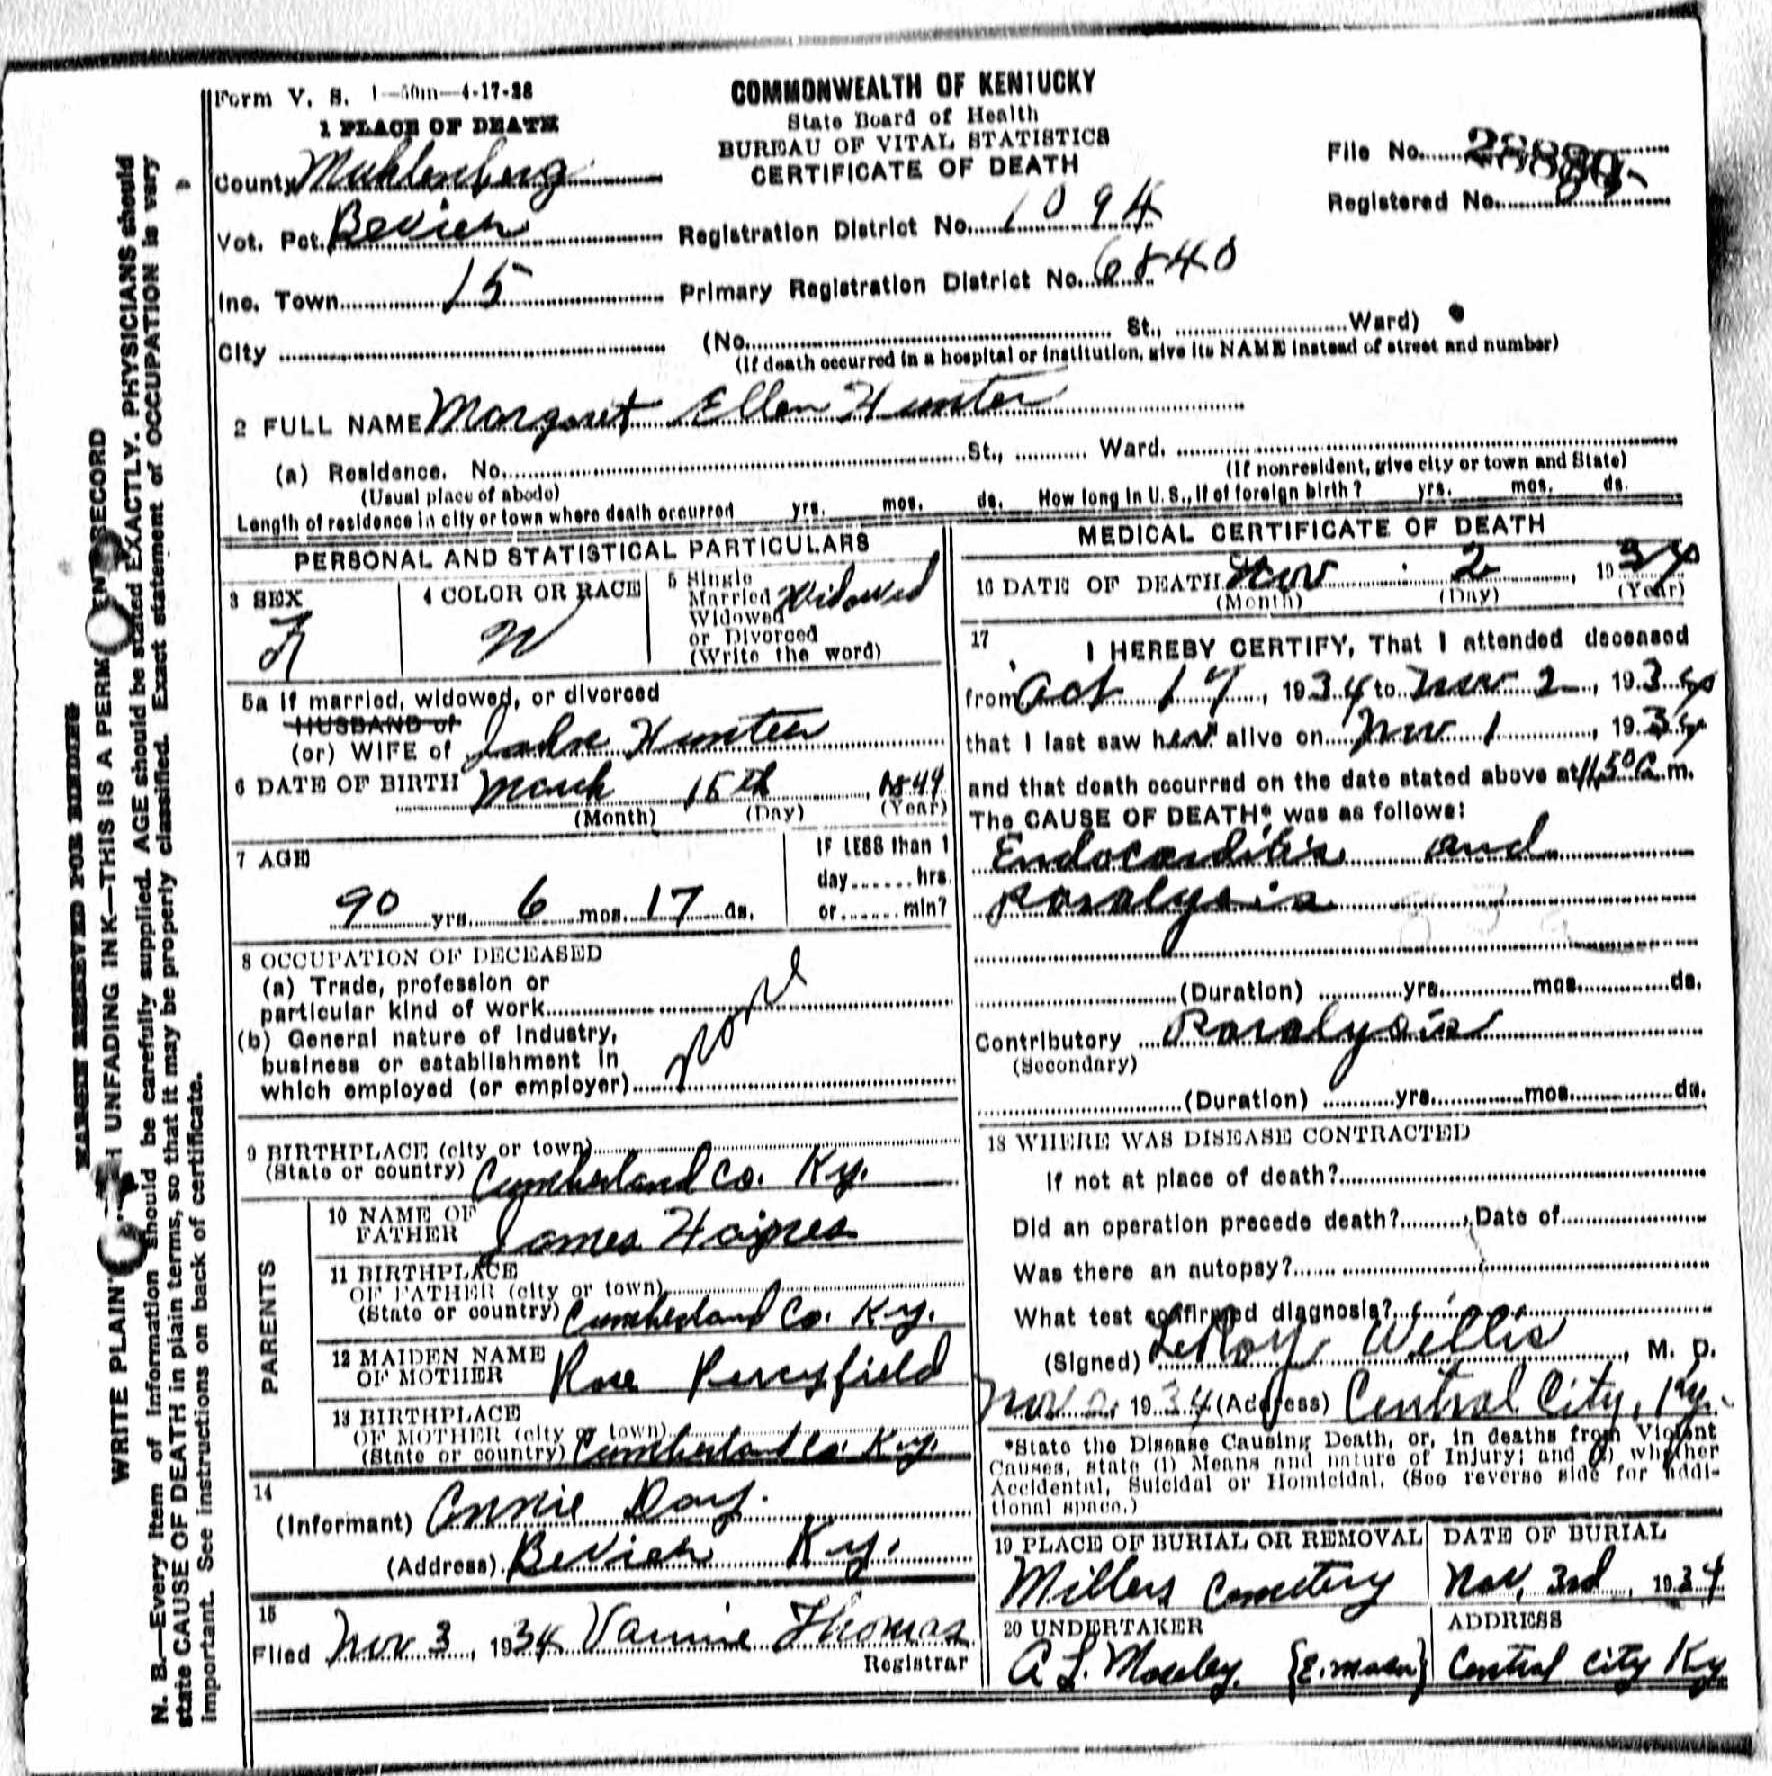 Form V. S. 1—50m—4-17-28
COMMONWEALTH OF KENTUCKY
State Board of Health
BUREAU OF VITAL STATISTICS
CERTIFICATE OF DEATH
1 PLACE OF DEATH
County Muhlenberg
File No.
Registered No.
Vot. Pct. Bevier
Registration District No. 1094
Inc. Town 15
Primary Registration District No. 6840
City
(No. St., Ward)
(If death occurred in a hospital or institution, give its NAME instead of street and number)
2 FULL NAME Margaret Ellen Hunter
(a) Residence. No. St., Ward.
(Usual place of abode) (If nonresident, give city or town and State)
Length of residence in city or town where death occurred yrs. mos. ds. How long in U. S., if of foreign birth? yrs. mos. ds.
PERSONAL AND STATISTICAL PARTICULARS
3 SEX
F
4 COLOR OR RACE
W
5 Single
Married
Widowed
or Divorced
(Write the word)
Widowed
5a If married, widowed, or divorced
HUSBAND of
(or) WIFE of John Hunter
6 DATE OF BIRTH March 15th, 1844
(Month) (Day) (Year)
7 AGE
90 yrs. 6 mos. 17 ds.
IF LESS than 1
day hrs.
or min?
8 OCCUPATION OF DECEASED
(a) Trade, profession or
particular kind of work
(b) General nature of industry,
business or establishment in
which employed (or employer)
None
9 BIRTHPLACE (city or town)
(State or country) Cumberland Co. Ky.
PARENTS
10 NAME OF
FATHER James Haynes
11 BIRTHPLACE
OF FATHER (city or town)
(State or country) Cumberland Co. Ky.
12 MAIDEN NAME
OF MOTHER Rose
13 BIRTHPLACE
OF MOTHER (city or town)
(State or country) Cumberland Co. Ky.
14
(Informant) Annie Day.
(Address) Bevier Ky.
15
Filed Nov 3, 1934 Vannie Thomas
Registrar
MEDICAL CERTIFICATE OF DEATH
16 DATE OF DEATH Nov 2, 1934
(Month) (Day) (Year)
17
I HEREBY CERTIFY, That I attended deceased
from Oct 17, 1934 to Nov 2, 1934
that I last saw her alive on Nov 1, 1934
and that death occurred on the date stated above at 1150 a.m.
The CAUSE OF DEATH* was as follows:
Endocarditis and
Paralysis
(Duration) yrs. mos. ds.
Contributory Paralysis
(Secondary)
(Duration) yrs. mos. ds.
18 WHERE WAS DISEASE CONTRACTED
If not at place of death?
Did an operation precede death? Date of
Was there an autopsy?
What test confirmed diagnosis?
(Signed) LeRoy Willis, M. D.
Nov 2, 1934 (Address) Central City, Ky.
*State the Disease Causing Death, or, in deaths from Violent
Causes, state (1) Means and nature of Injury; and (2) whether
Accidental, Suicidal or Homicidal. (See reverse side for addi-
tional space.)
19 PLACE OF BURIAL OR REMOVAL
Millers Cemetery
DATE OF BURIAL
Nov, 3rd, 1934
20 UNDERTAKER
A L. Moseley.
ADDRESS
Central City Ky
MARGIN RESERVED FOR BINDING
WRITE PLAINLY WITH UNFADING INK—THIS IS A PERMANENT RECORD
N. B.—Every item of information should be carefully supplied. AGE should be stated EXACTLY. PHYSICIANS should
state CAUSE OF DEATH in plain terms, so that it may be properly classified. Exact statement of OCCUPATION is very
important. See instructions on back of certificate.